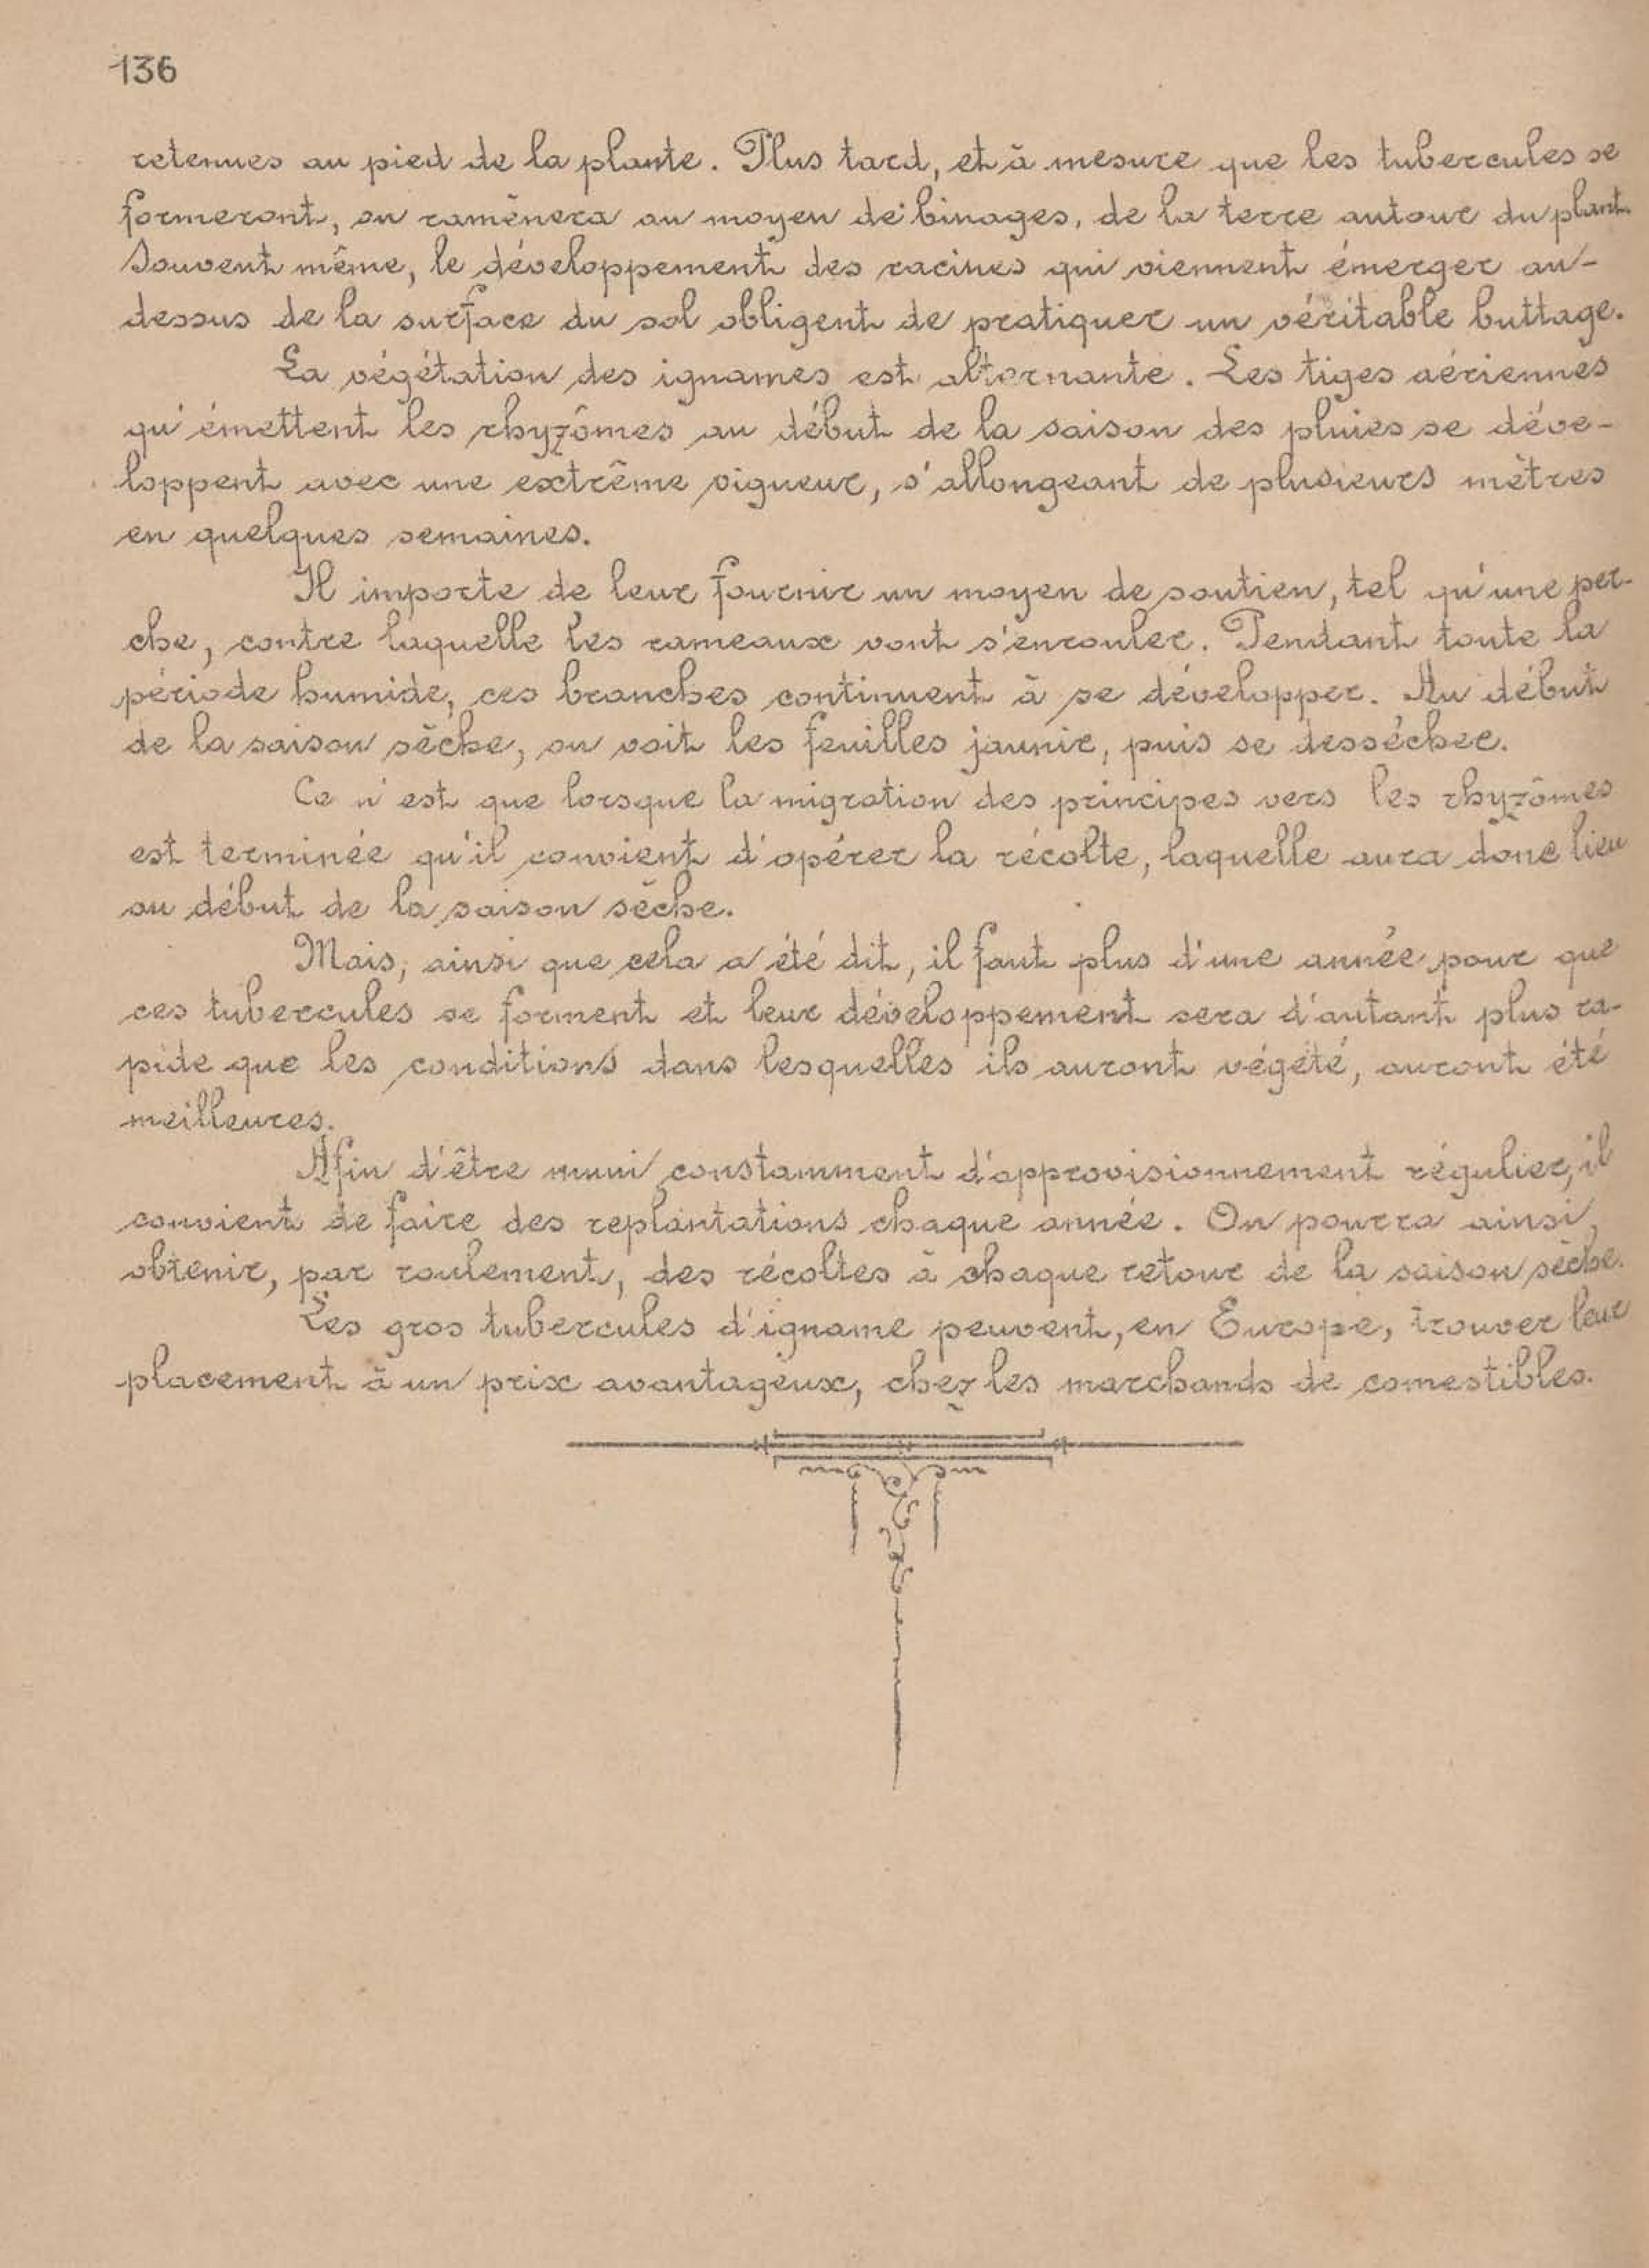 136
retenues au pied de la plante. Plus tard, et à mesure que les tubercules se
formeront, on ramènera au moyen de binages, de la terre autour du plant.
Souvent même, le développement des racines qui viennent émerger au-
dessus de la surface du sol obligent de pratiquer un véritable buttage.
La végétation des ignames est alternante. Les tiges aériennes
qu'émettent les rhyzômes au début de la saison des pluies se déve-
loppent avec une extrême vigueur, s'allongeant de plusieurs mètres
en quelques semaines.
Il importe de leur fournir un moyen de soutien, tel qu'une per-
che, contre laquelle les rameaux vont s'enrouler. Pendant toute la
période humide, ces branches continuent à se développer. Au début
de la saison sèche, on voit les feuilles jaunir, puis se dessécher.
Ce n'est que lorsque la migration des principes vers les rhyzômes
est terminée qu'il convient d'opérer la récolte, laquelle aura donc lieu
au début de la saison sèche.
Mais, ainsi que cela a été dit, il faut plus d'une année pour que
ces tubercules se forment et leur développement sera d'autant plus ra-
pide que les conditions dans lesquelles ils auront végété, auront été
meilleures.
Afin d'être muni constamment d'approvisionnement régulier, il
convient de faire des replantations chaque année. On pourra ainsi,
obtenir, par roulement, des récoltes à chaque retour de la saison sèche.
Les gros tubercules d'igname peuvent, en Europe, trouver leur
placement à un prix avantageux, chez les marchands de comestibles.